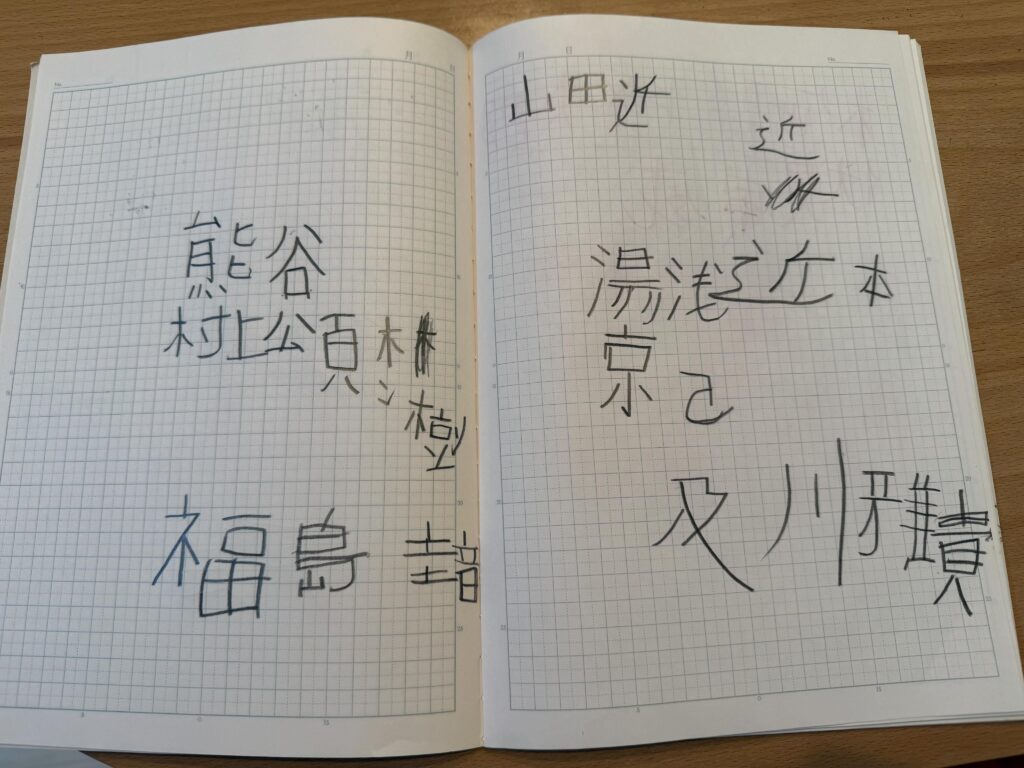 月 日
熊谷
村上公頁木
樹
福島 圭
No. 月 日
山田近
近
湯浅近本
京己
及川雅